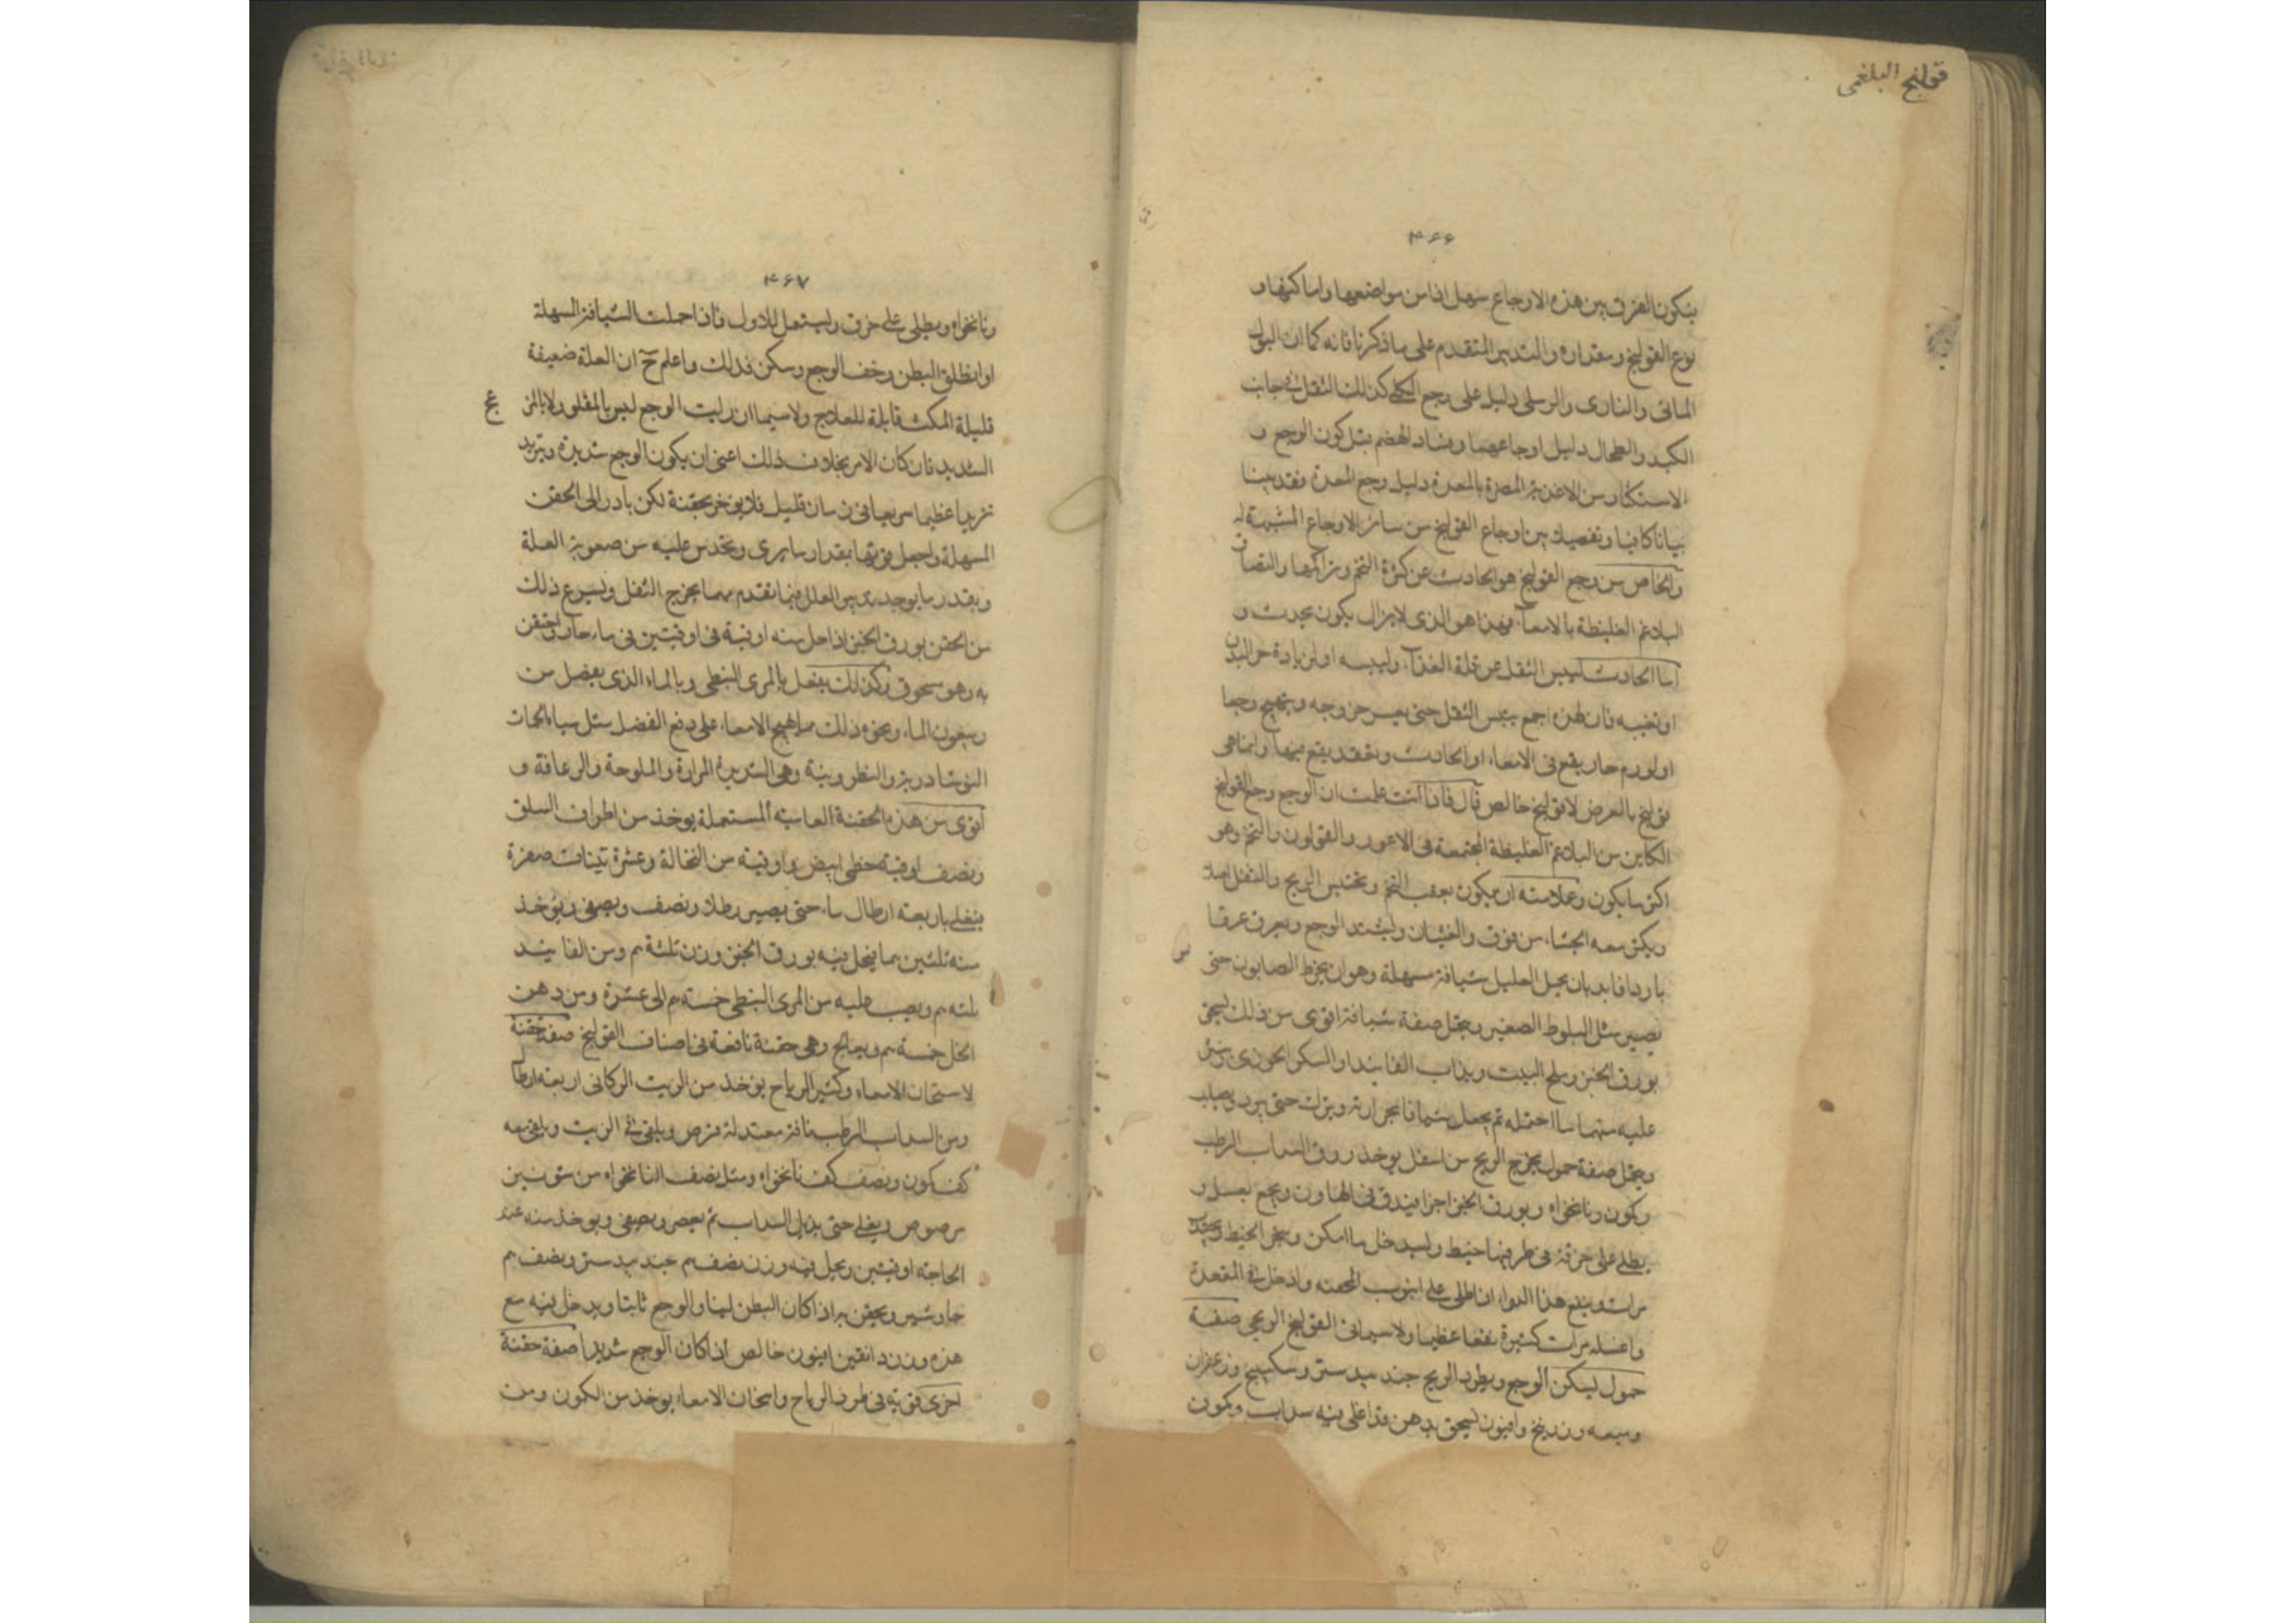 قولنج البلغمى
۴۶۶
بنكون الفرق بين هذه الاوجاع سهل اذا من مواضعها واماكنها و
نوع القولنج ومقداره والتدبير المتقدم على ما ذكرنا فانه كما ان البول
المائى والنارى والرملى دليل على وجع الكلى كذلك الثقل فى جانب
الكبد والطحال دليل اوجاعهما وفساد الهضم قبل كون الوجع و
الاستكثار من الاغذية المضرة بالمعدة دليل وجع المعدة وقد بينا
بيانا كافيا وتفصيل بين اوجاع القولنج من سائر الاوجاع المشبهة له
والخاص من وجع القولنج هو الحادث عن كثرة التخم وتراكمها والتصاق
البلاغم الغليظة بالامعاء فهذا هو الذى لا يزال يكون يحدث و
اما الحادث ليبس الثقل عن قلة الغذاء وليبسه او لزيادة حر البدن
او تعبه فان لهذه اجمع يبس الثفل حتى يعسر خروجه ويهيج وجعا
او لورم حار يقع فى الامعاء او الحادث وتعقد يقع فيها وانما هى
قولنج بالعرض لا قولنج خالص قال فاذا انت علمت ان الوجع وجع القولنج
الكاين من البلاغم الغليظة المجتمعة فى الاعور والقولون والتخم وهو
اكثر ما يكون وعلامته ان يكون بعقب التخم وتحتبس الريح والثفل اصلا
ويكثر معه الجشاء من فوق والغثيان ويشتد الوجع ويعرق عرقا
باردا فابد بان يحمل العليل شيافة مسهلة وهو ان يخرط الصابون حتى
يصير مثل البلوط الصغير ويحمل صفة شيافة اقوى من ذلك يسحق
بورق الخبز وملح البيت ويذاب الفانيد او السكر الحوزى وينثر
عليه منهما ما احتمله ثم يجعل شيافا بحرارته ويترك حتى يبرد ويصلب
ويحمل صفة حمول يخرج الريح من اسفل يوخذ ورق السداب الرطب
وكمون ونانخواه وبورق الخبز اجزا فيدق فى الهاون ويجمع بعسل و
يطلى على خرقة فى طرفيها خيط وليدخل ما امكن ويجر الخيط ويجذب
مرات وينفع هذا الدواء ان طلى على انبوب المحقنه وادخل فى المقعدة
واغسله مرات كثيرة نفعا عظيما ولا سيما فى القولنج الريحى صفة
حمول ليسكن الوجع ويطرد الريح جند بيدستر وسكبينج وزعفران
وميعه وزرنيخ وافيون ليسحق بدهن قد اغلى فيه سداب وكمون
۴۶۷
ونانخواه ويطلى على خرق وليستعمل للاول فاذا احملت الشيافة المسهلة
او انطلق البطن وخف الوجع وسكن فذلك واعلم ح ان العلة ضعيفة
قليلة المكث قابلة للعلاج ولا سيما ان رايت الوجع ليس بالمقلق ولا بالمز عج
الشديد فان كان الامر بخلاف ذلك اعنى ان يكون الوجع شديده ويتزيد
تزيدا عظيما سريعا فى زمان قليل فلا يوخر بحقنة لكن بادر الى الحقن
المسهلة واجعل قوتها بمقدار ما يرى ويحدس عليه من صعوبة العلة
وبقدر ما يوجد تدبير العليل فيما تقدم مهما يخرج الثفل ويسرع ذلك
من الحقن بورق الخبز اذا حل منه اوقية فى اوقيتين فى ماء حار واحتقن
به وهو مسحوق وكذلك يفعل بالمرى النبطى وبالماء الذى يفضل من
ربيعون الماء ونحو ذلك مما يهيج الامعاء على دفع الفضل مثل مياه الحمات
النوشادرية والنطرونية وهى الشديدة المرارة والملوحة والزعاقة و
اقوى من هذه الحقنة العامية المستعملة يوخذ من اطراف السلق
ونصف اوقية خطمى ابيض واوقية من النخالة وعشرة تينات صفرة
يغلى باربعة ارطال ماء حتى يصير رطلا ونصف ويصفى ويوخذ
منه ثلثين مما ينحل فيه بورق الخبز وزن ثلثة م ومن الفانيد
ثلثه م ويصب عليه من المرى النبطى خمسة م الى عشرة ومن دهن
الخل خمسة م ويعالج وهى حقنة نافعة فى اصناف القولنج صفة حقنة
لاسخان الامعاء وكثير الرياح يوخذ من الزيت الركابى اربعه ارطال
ومن السداب الرطب باقة معتدلة فرض ويلقى فى الزيت ويلقى معه
كف كمون ونصف كف نانخواه ومثل نصف النانخواه من شونيز
مرضوض ويغلى حتى يذبل السداب ثم يعصر ويصفى ويوخذ منه عند
الحاجة اوقيتين ويحل فيه وزن نصف م جند بيدستر ونصف م
جاوشير ويحقن به اذا كان البطن لينا والوجع ثابتا ويدخل فيه مع
هذه وزن دانقين افيون خالص اذا كان الوجع شديدا صفة حقنة
اخرى قوية فى طرد الرياح واسخان الامعاء يوخذ من الكمون ومن